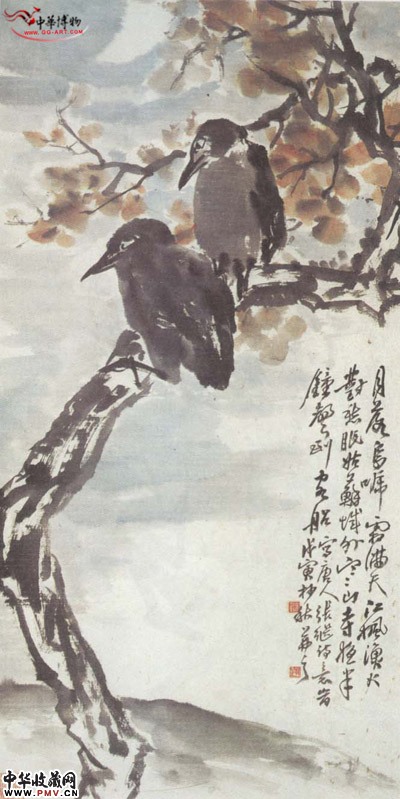 中華博物
www.GG-ART.com
月落烏啼霜滿天江楓漁火
對愁眠姑蘇城外寒山寺夜半
鐘聲到客船寫唐人張繼詩意
戊寅杪秋
中华收藏网
www.PMV.CN